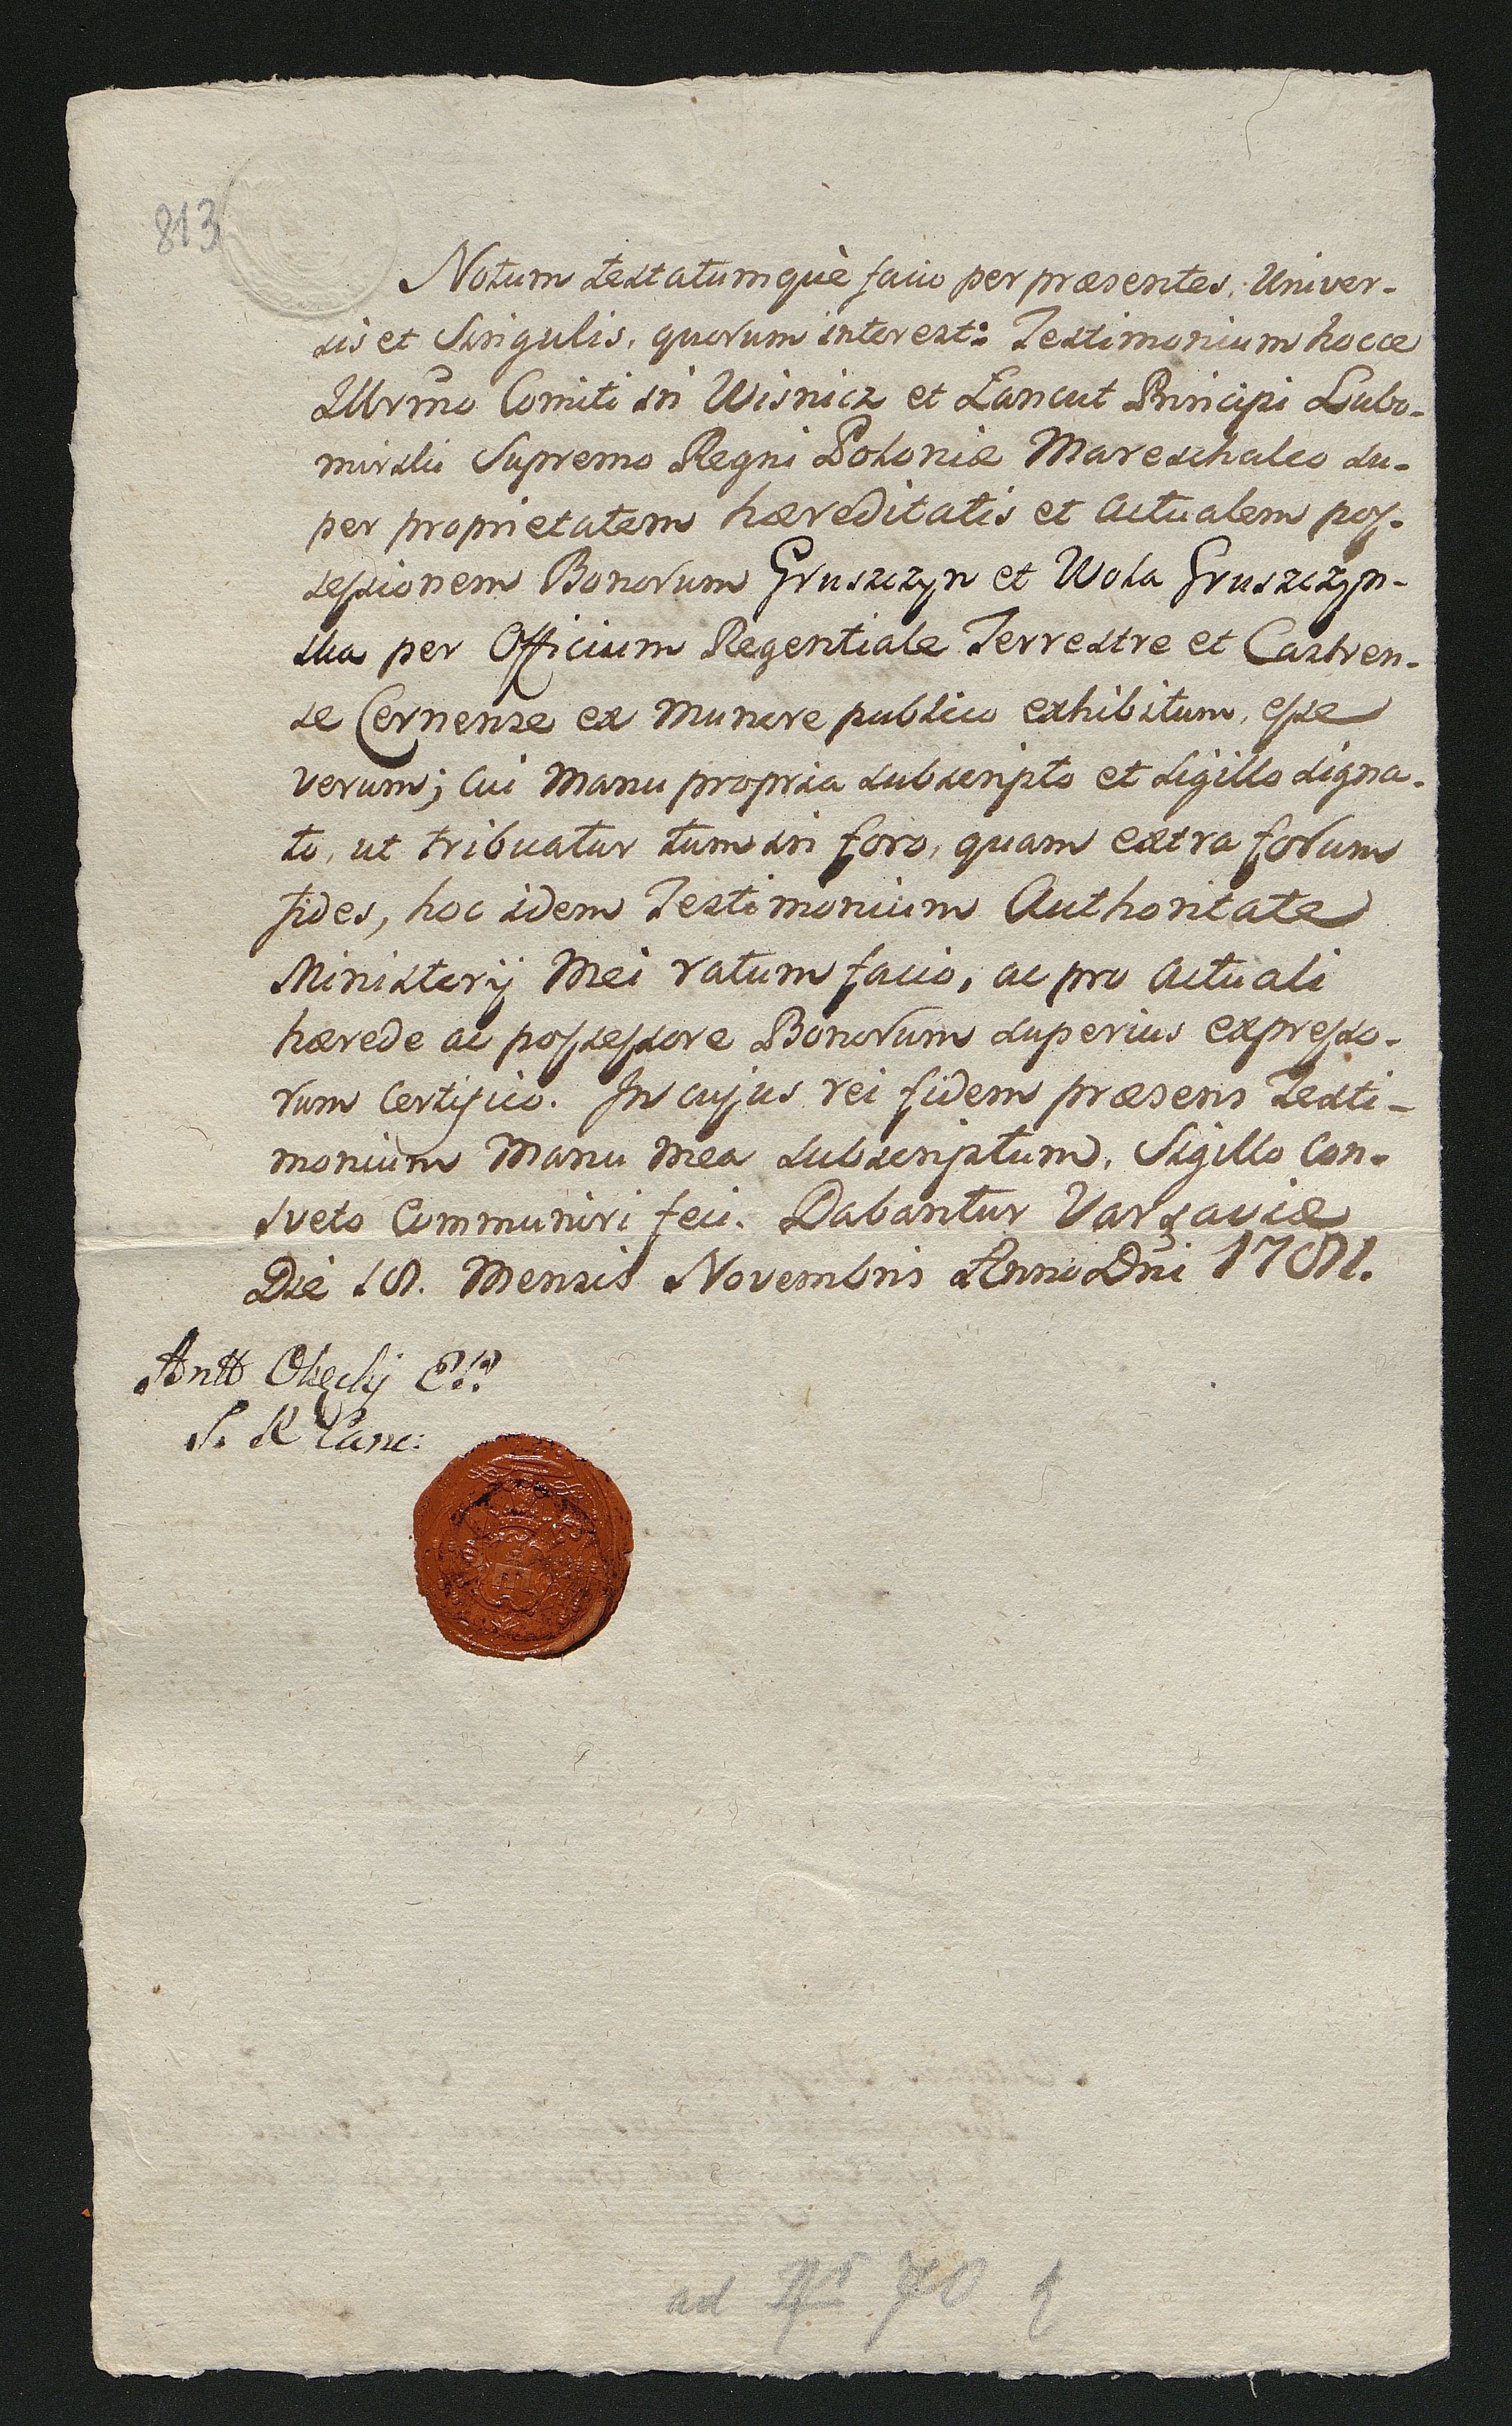 813
Notum testatumquè facio per præsentes, Univer-
sis et Singulis, quorum interest: Testimonium hocce
Illmo Comiti in Wisnicz et Łancut Principi Lubo-
mirski Supremo Regni Poloniæ Mareschalco su-
per proprietatem hæreditatis et actualem pos-
sessionem Bonorum Gruszczyn et Wola Gruszczyn-
ska per Officium Regentiale Terrestre et Castren-
se Cernense ex Munere publico exhibitum, esse
verum; cui Manu propria subscripto et sigillo signa-
to, ut tribuatur tum in foro, quam extra forum
fides, hoc idem Testimonium Authoritate
Ministerij Mei ratum facio, ac pro actuali
hærede ac possessore Bonorum superius expresso-
rum certifico. In cujus rei fidem præsens Testi-
monium Manu Mea subscriptum, Sigillo Con-
sveto Communiri feci. Dabantur Varsaviæ
Die 18. Mensis Novembris Anno Dni 1781.
Antt Okęckij
S. R Canc:
ad 70